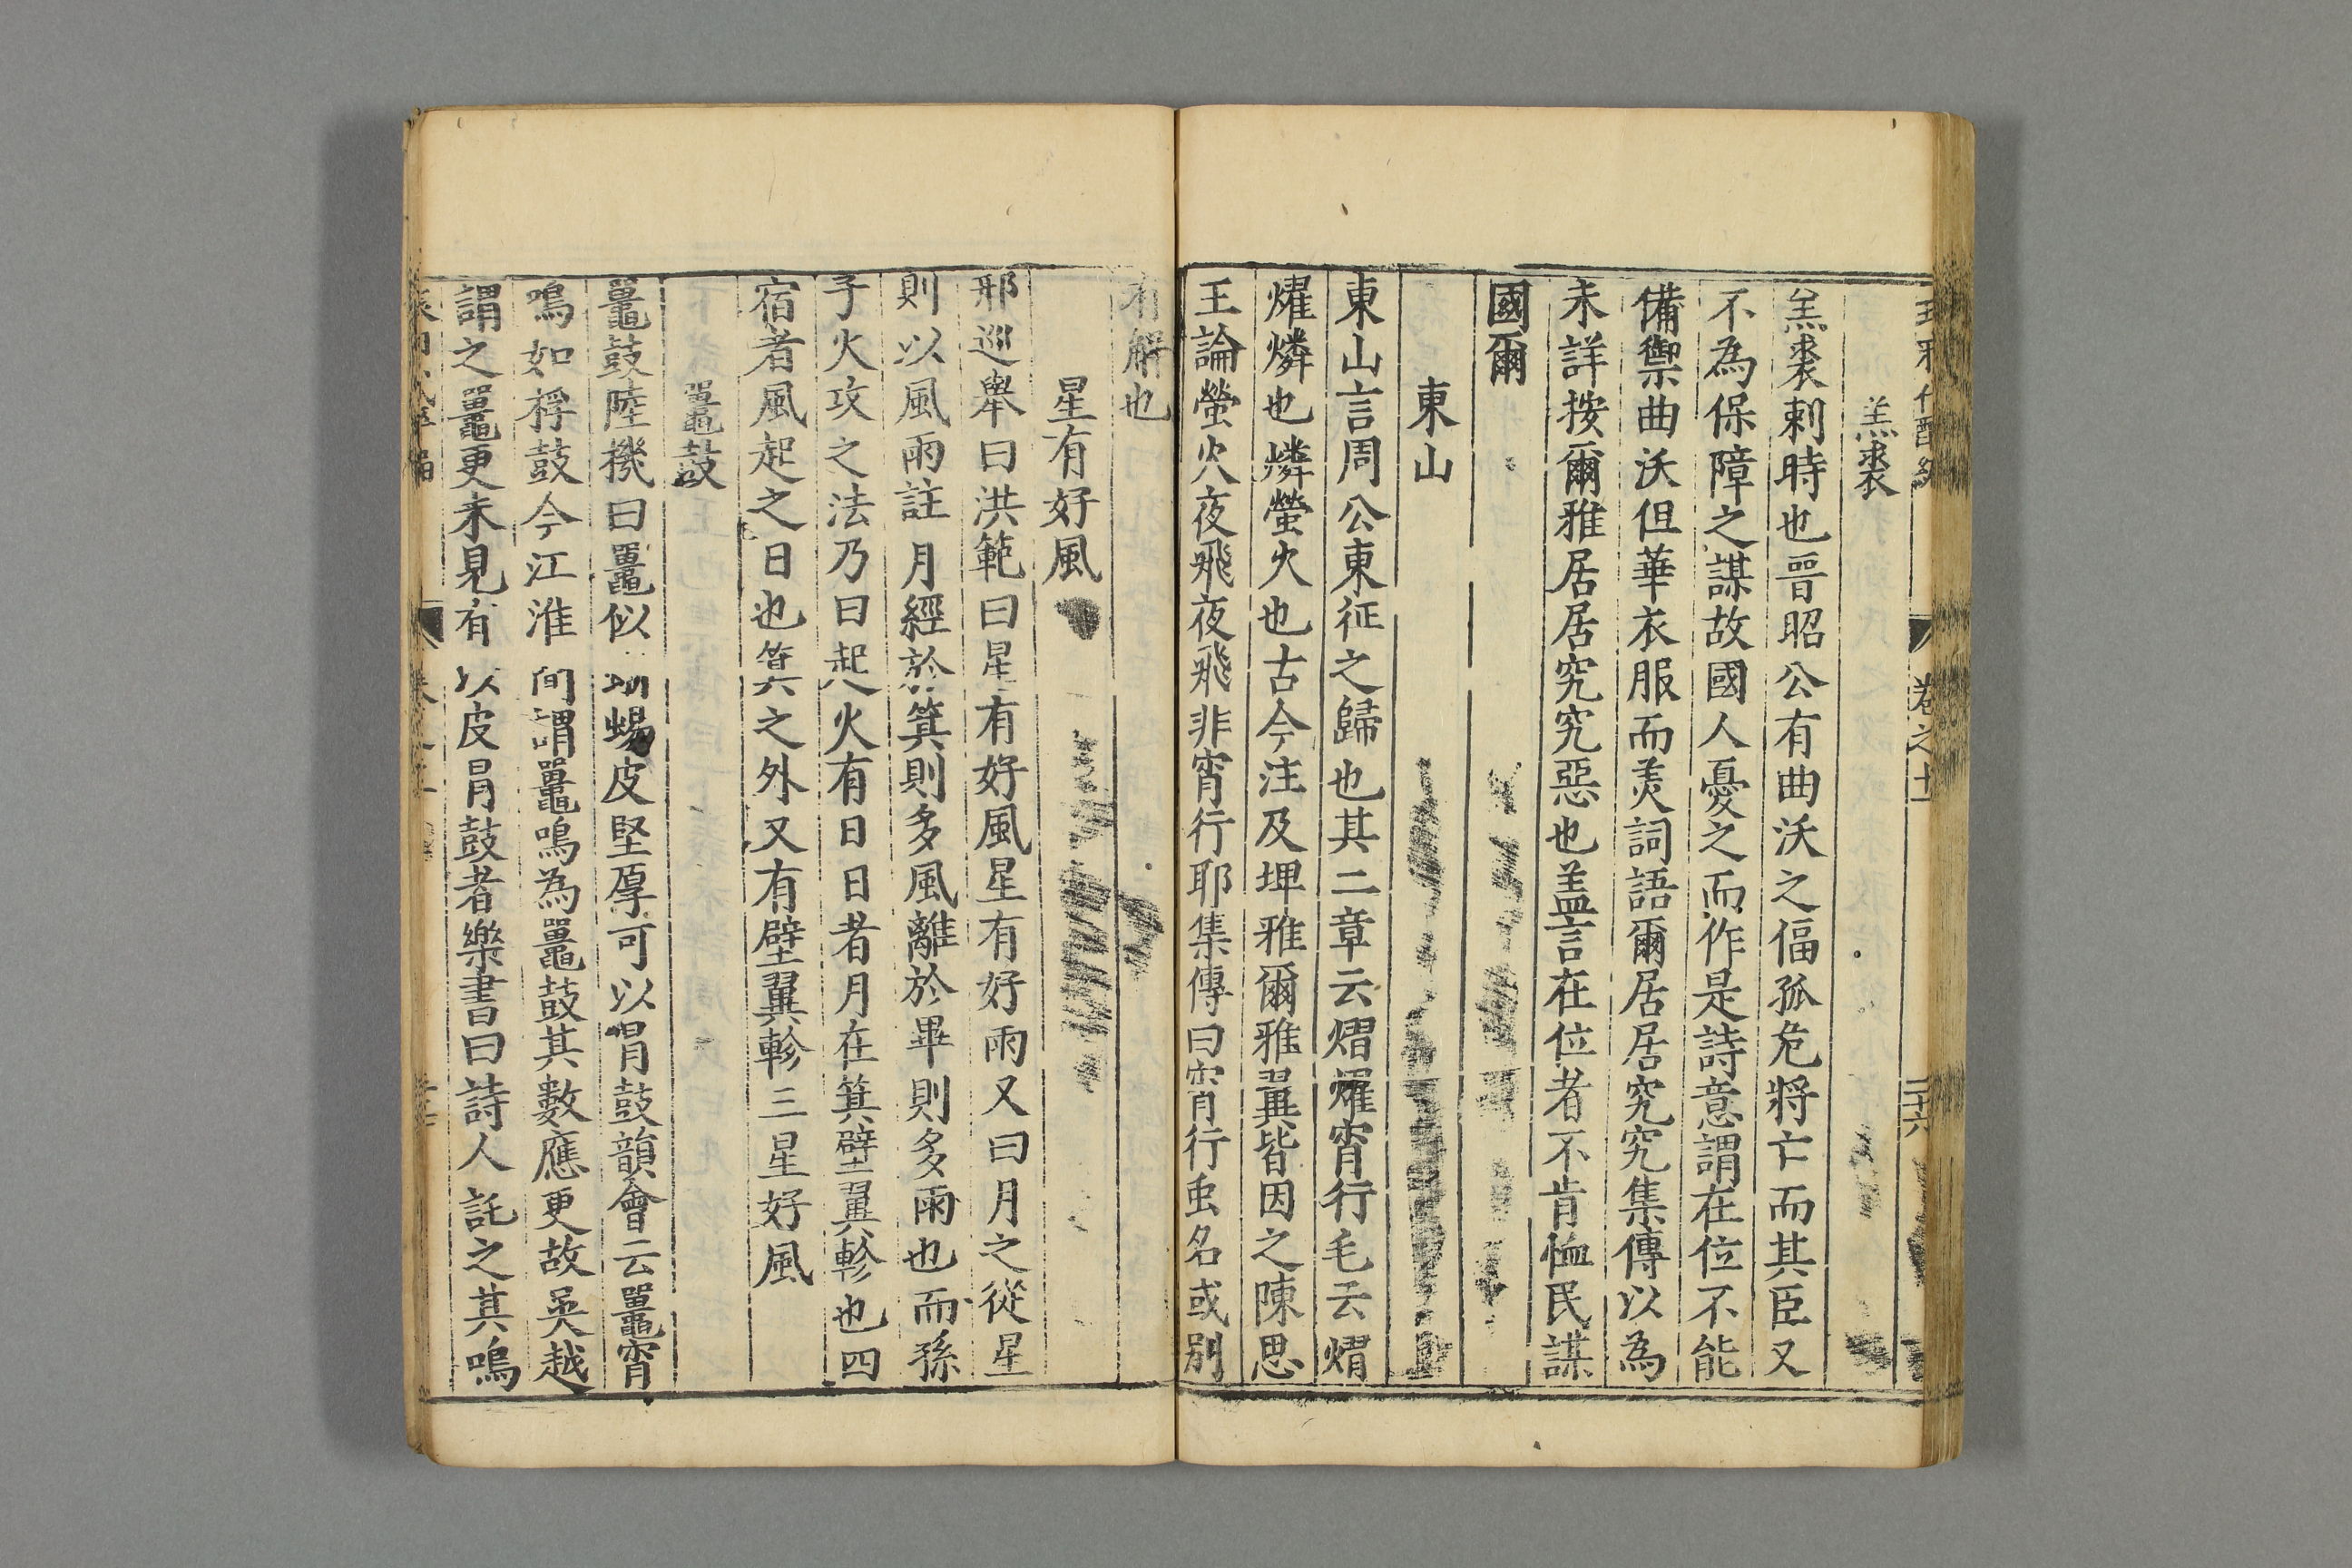 卷之十一
二十六
羔裘
羔裘刺時也晉昭公有曲沃之偪孤危將亡而其臣又
不為保障之謀故國人憂之而作是詩意謂在位不能
備禦曲沃但華衣服而羙詞語爾居居究究集傳以為
未詳按爾雅居居究究惡也盖言在位者不肯恤民謀
國爾
東山
東山言周公東征之歸也其二章云熠燿宵行毛云熠
燿燐也燐螢火也古今注及埤雅爾雅翼皆因之陳思
王論螢火夜飛夜飛非宵行耶集傳曰宵行虫名或別
有解也
星有好風
邢巡舉曰洪範曰星有好風星有好雨又曰月之從星
則以風雨註月經於箕則多風離於畢則多雨也而孫
子火攻之法乃曰起火有日日者月在箕壁翼軫也四
宿者風起之日也箕之外又有壁翼軫三星好風
鼉鼓
鼉鼓陸機曰鼉似蜥蜴皮堅厚可以冐鼓韻會云鼉宵
鳴如桴鼓今江淮間謂鼉鳴為鼉鼓其數應更故吳越
謂之鼉更未見有以皮冐鼓者樂書曰詩人託之其鳴